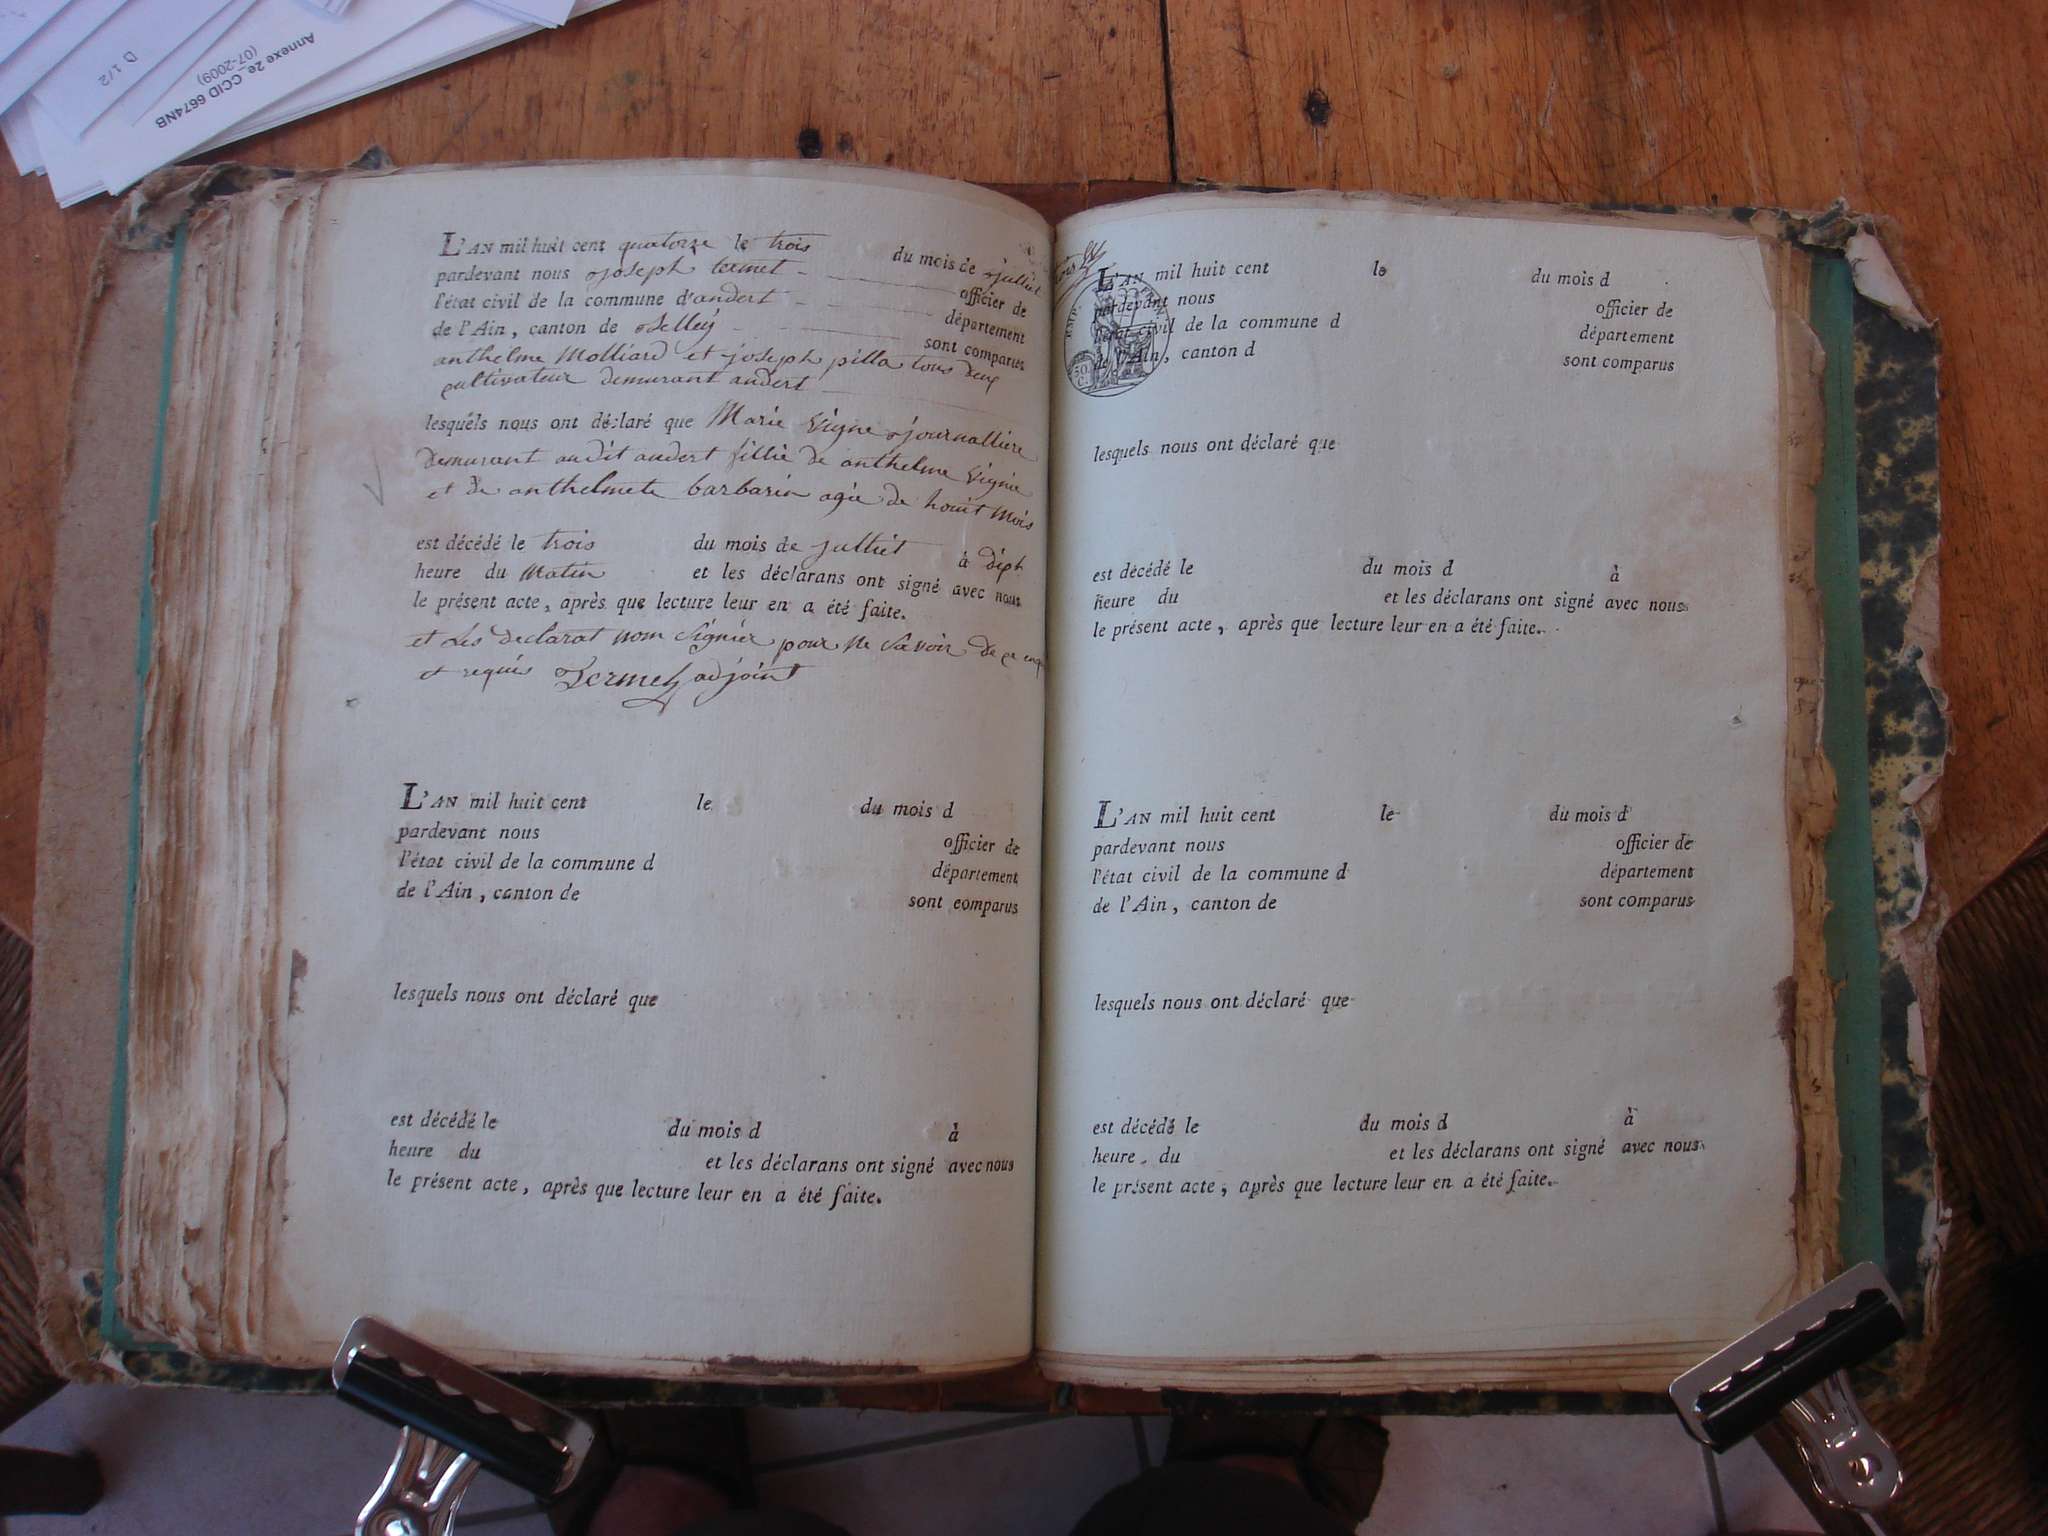 Annexe 2e_CCID 6674NB
(07-2009)
D 1/2
L'AN mil huit cent quatorze le trois du mois de julliet
pardevant nous joseph termet officier de
l'état civil de la commune d'andert département
de l'Ain, canton de Belley sont comparus
anthelme Molliard et joseph pilla tous deux
cultivateur demurant andert
lesquels nous ont déclaré que Marie Vigne journalliere
demurant audit andert fillie de anthelme Vigne
et de anthelmete barbarin agée de houit mois
est décédé le trois du mois de julliet à
heure du matin et les déclarans ont signé avec nous
le présent acte, après que lecture leur en a été faite.
et Les declarat nom Signiér pour ne savoir de ce enq
et requis Termet adjoint
L'AN mil huit cent le du mois d
pardevant nous officier de
l'état civil de la commune d département
de l'Ain, canton de sont comparus
lesquels nous ont déclaré que
est décédé le du mois d à
heure du et les déclarans ont signé avec nous
le présent acte, après que lecture leur en a été faite.
L'AN mil huit cent le du mois d
pardevant nous officier de
l'état civil de la commune d département
de l'Ain, canton d sont comparus
50
C.
lesquels nous ont déclaré que
est décédé le du mois d à
heure du et les déclarans ont signé avec nous
le présent acte, après que lecture leur en a été faite.
L'AN mil huit cent le du mois d
pardevant nous officier de
l'état civil de la commune d département
de l'Ain, canton de sont comparus
lesquels nous ont déclaré que
est décédé le du mois d à
heure du et les déclarans ont signé avec nous
le présent acte, après que lecture leur en a été faite.